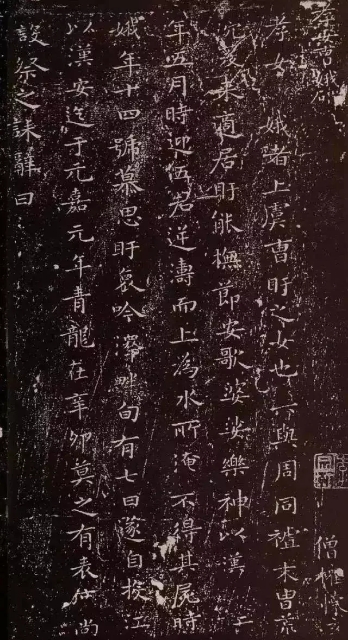 孝女曹娥碑
孝女曹娥者上虞曹盱之女也其先與周同祖末胄荒
沉爰來適居盱能撫節安歌婆娑樂神以漢安二
年五月時迎伍君逆濤而上為水所淹不得其屍時
娥年十四號慕思盱哀吟澤畔旬有七日遂自投江
死經五日抱父屍出以漢安迄于元嘉元年青龍在辛卯莫之有表度尚
設祭之誄辭曰
僧權